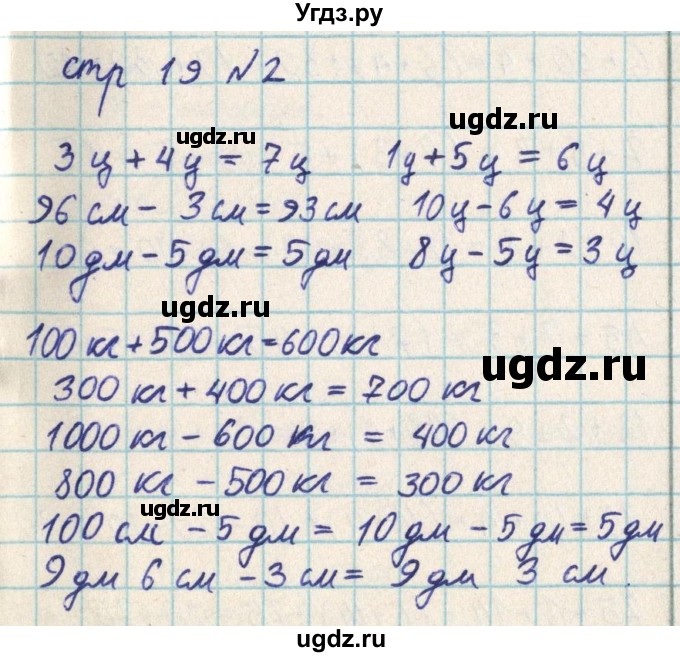 Угдз.ру
стр 19 №2
ugdz.ru ugdz.ru
3 ц + 4 ц = 7 ц 1 ц + 5 ц = 6 ц
96 см - 3 см = 93 см 10 ц - 6 ц = 4 ц
10 дм - 5 дм = 5 дм 8 ц - 5 ц = 3 ц
ugdz.ru
100 кг + 500 кг = 600 кг
ugdz.ru
300 кг + 400 кг = 700 кг
1000 кг - 600 кг = 400 кг
800 кг - 500 кг = 300 кг
ugdz.ru
100 см - 5 дм = 10 дм - 5 дм = 5 дм
9 дм 6 см - 3 см = 9 дм 3 см.
ugdz.ru